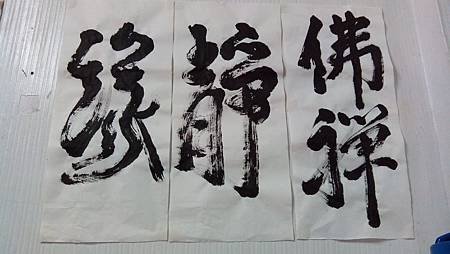 佛禅
靜
緣